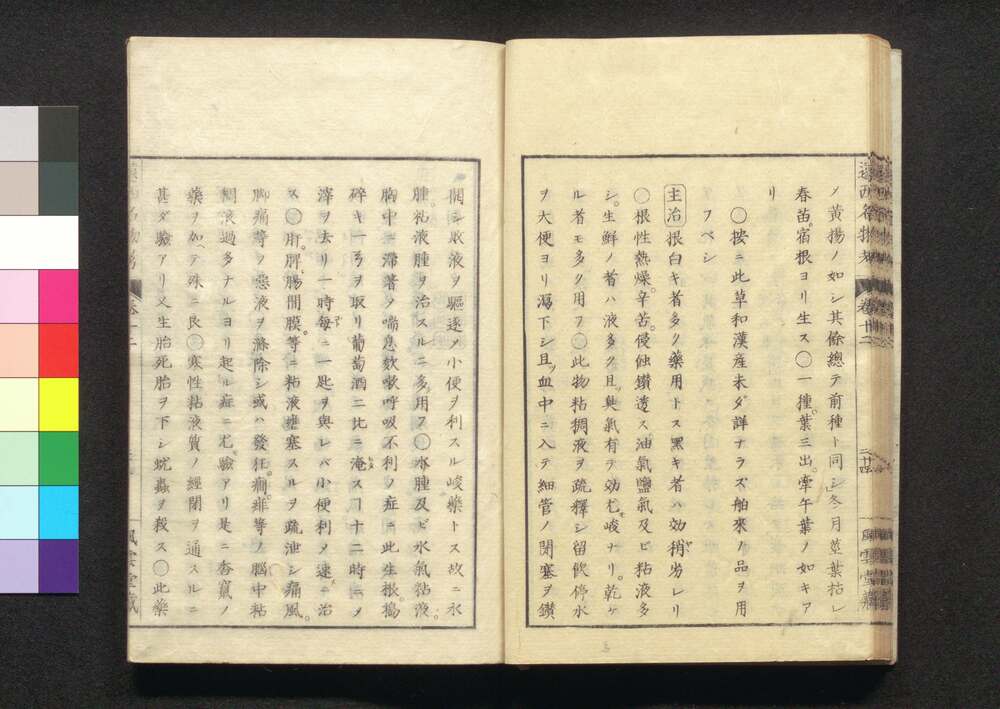 ノ黄楊ノ如シ其條總テ前種ト同シ冬月莖葉枯レ
春苗宿根ヨリ生ス〇一種葉三出牽牛葉ノ如キア
リ
〇按ニ此草和漢産未ダ詳ナラズ舶來ノ品ヲ用
フベシ
主治根白キ者多ク藥用トス黒キ者ハ効稍劣レリ
〇根性熱燥辛苦侵蝕鑚透ス油氣鹽氣及ビ粘液多
シ生鮮ノ者ハ液多ク且臭氣有テ効尤峻ナリ乾ケ
ル者モ多ク用フ〇此物粘稠液ヲ疏釋シ留飲停水
ヲ大便ヨリ瀉下シ且血中ニ入テ細管ノ閉塞ヲ鑚
開シ敗液ヲ驅逐メ小便ヲ利スル峻藥トス故ニ水
腫粘液腫ヲ治スルニ多用フ〇水腫及ビ水氣粘液
胸中ニ滯著メ喘息欬嗽呼吸不利ノ症ニ此生根搗
碎キ一弓ヲ取リ葡萄酒二比ニ淹スヿ十二時ニメ
滓ヲ去リ一時毎ニ一匙ヲ與レバ小便利メ速ニ治
ス〇肝脾腸間膜等ニ粘液壅塞スルヲ疏泄シ痛風
脚痛等ノ惡液ヲ滌除シ或ハ發狂癇痱等ノ腦中粘
稠液過多ナルヨリ起ル症ニ尤驗アリ是ニ杏竄ノ
藥ヲ加テ殊ニ良〇寒性粘液質ノ經閉ヲ通スルニ
甚ダ驗アリ又生胎死胎ヲ下シ蚘蟲ヲ殺ス〇此藥
卷十二
風雲堂藏